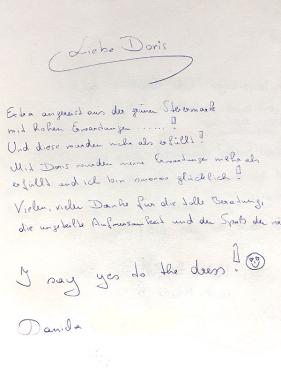 Liebe Doris
Extra angereist aus der grünen Steiermark
mit hohen Erwartungen ......!
Und diese wurden mehr als erfüllt!
Mit Doris wurden meine Erwartungen mehr als
erfüllt und ich bin so glücklich!
Vielen, vielen Danke für die tolle Beratung,
die ungeteilte Aufmerksamkeit und den Spaß der
I say yes to the dress!
Daniela